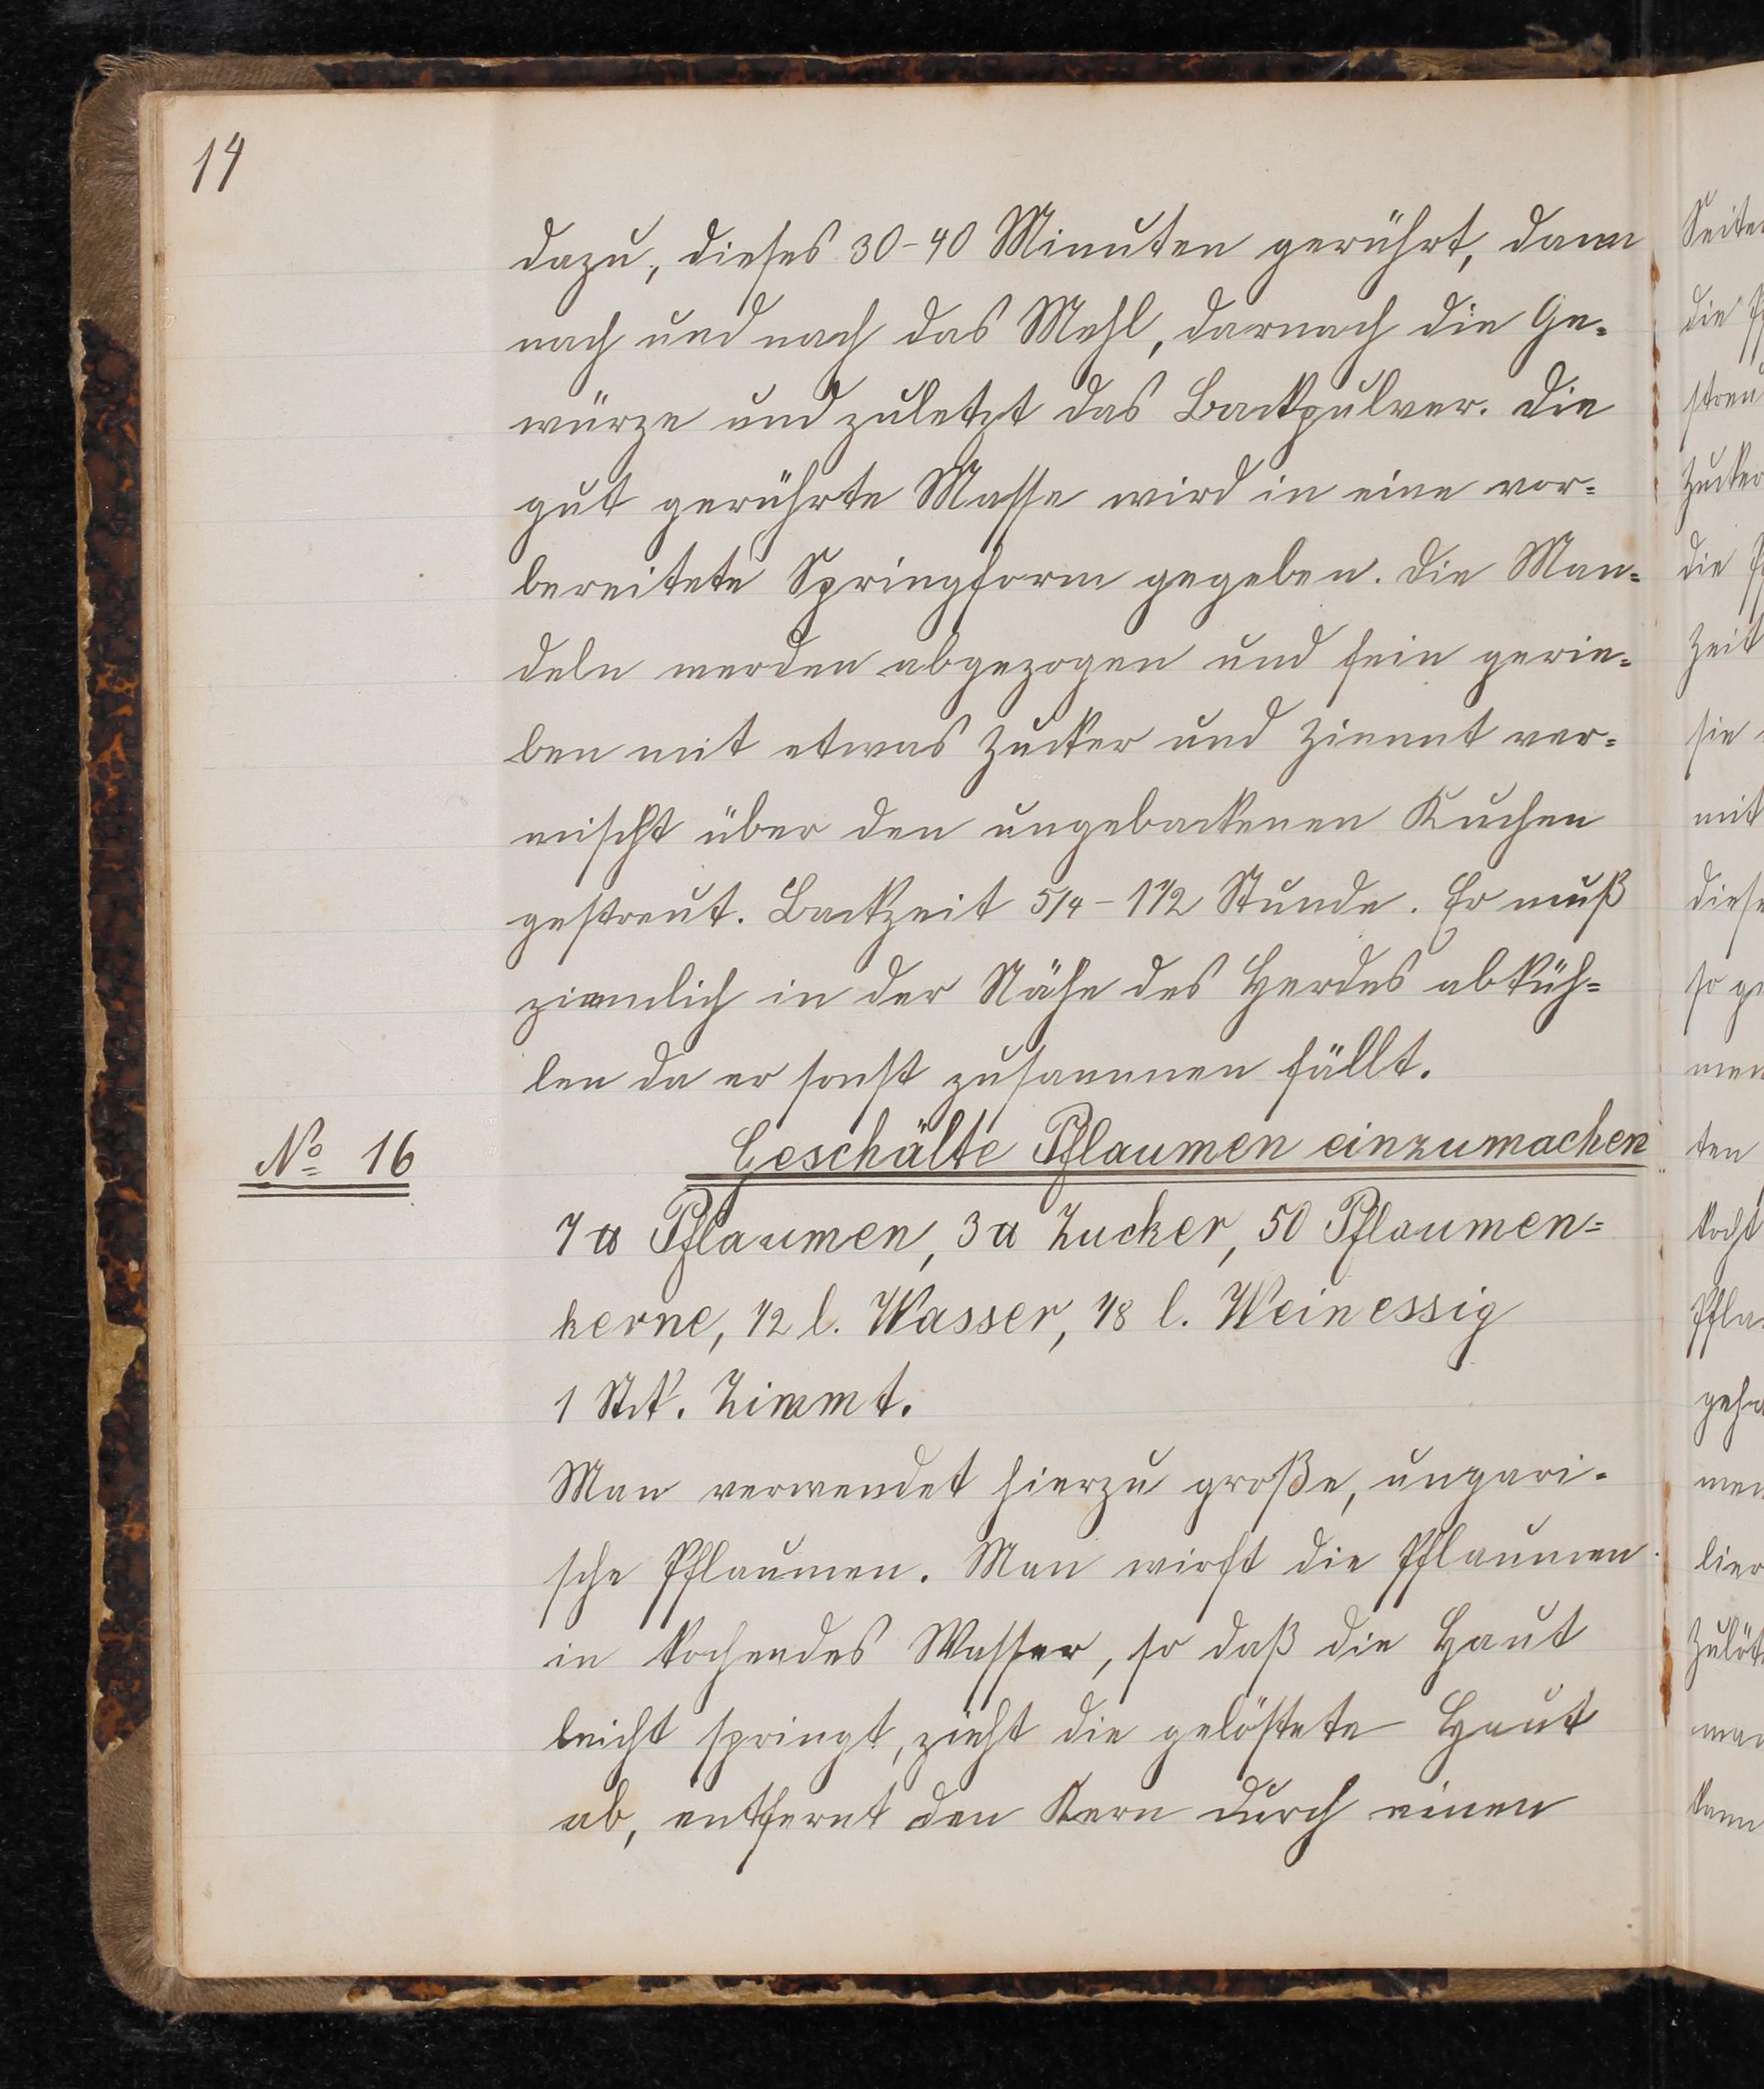 14
dazu, dieses 30-40 Minuten gerührt, dann
nach und nach das Mehl, darnach die Ge=
würze und zuletzt das Backpulver. Die
gut gerührte Masse wird in eine vor=
bereitete Springform gegeben. Die Man=
deln werden abgezogen und fein gerie=
ben mit etwas Zucker und Zimmt ver=
mischt über den ungebackenen Kuchen
gestreut. Backzeit 5/4 - 1 1/2 Stunde. Er muß
ziemlich in der Nähe des Herdes abküh=
len da er sonst zusammen fällt.
No 16 Geschälte Pflaumen einzumachen
7 ℔ Pflaumen, 3 ℔ Zucker, 50 Pflaumen=
kerne, 1/2 l. Wasser, 1/8 l. Weinessig
1 Stck. Zimmt.
Man verwendet hierzu große, ungari=
sche Pflaumen. Man wirft die Pflaumen
in kochendes Wasser, so daß die Haut
leicht springt, zieht die gelöstete Haut
ab, entfernt den Kern durch einen
Seiten
die
streu
Zucker
die
Zeit
sie
mit
diese
so ge
men
ten
kocht
Pfla
men
man
kann